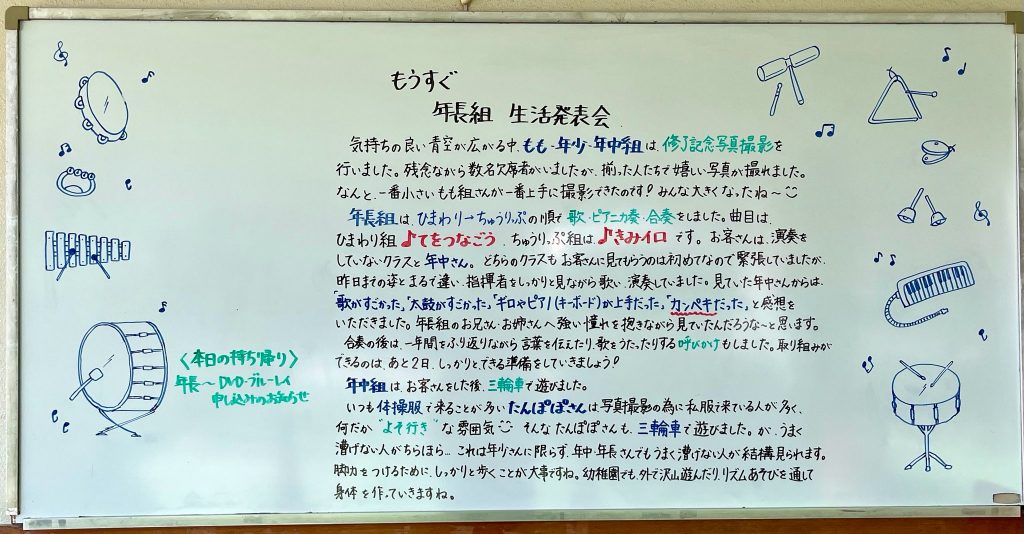 もうすぐ
年長組 生活発表会
気持ちの良い青空が広がる中、もも・年少・年中組は、修了記念写真撮影を
行いました。残念ながら数名欠席者がいましたが、揃った人たちで嬉しい写真が撮れました。
なんと、一番小さいもも組さんが一番上手に撮影できたのです!みんな大きくなったね〜
年長組は、ひまわり→ちゅうりっぷの順で歌・ピアニカ奏・合奏をしました。曲目は、
ひまわり組♪てをつなごう、ちゅうりっぷ組は♪きみイロです。お客さんは、演奏を
していないクラスと年中さん。どちらのクラスもお客さんに見てもらうのは初めてなので緊張していましたが、
昨日までの姿とまるで違い、指揮者をしっかりと見ながら歌い、演奏していました。見ていた年中さんからは、
「歌がすごかった」「太鼓がすごかった」「ギロやピアノ(キーボード)が上手だった」「カンペキだった」と感想を
いただきました。年長組のお兄さん・お姉さんへ強い憧れを抱きながら見ていたんだろうな〜と思います。
合奏の後は、一年間をふり返りながら言葉を伝えたり、歌をうたったりする呼びかけもしました。取り組みが
できるのは、あと2日、しっかりとできる準備をしていきましょう!
年中組は、お客さんをした後、三輪車で遊びました。
いつも体操服で来ることが多いたんぽぽさんは写真撮影の為に私服で来ている人が多く、
何だか"よそ行き"な雰囲気 そんなたんぽぽさんも、三輪車で遊びました。が、うまく
漕げない人がちらほら… これは年少さんに限らず、年中・年長さんでもうまく漕げない人が結構見られます。
脚力をつけるために、しっかりと歩くことが大事ですね。幼稚園でも、外で沢山遊んだり、リズムあそびを通して
身体を作っていきますね。
〈本日の持ち帰り〉
年長〜DVD・ブルーレイ
申し込みのお知らせ